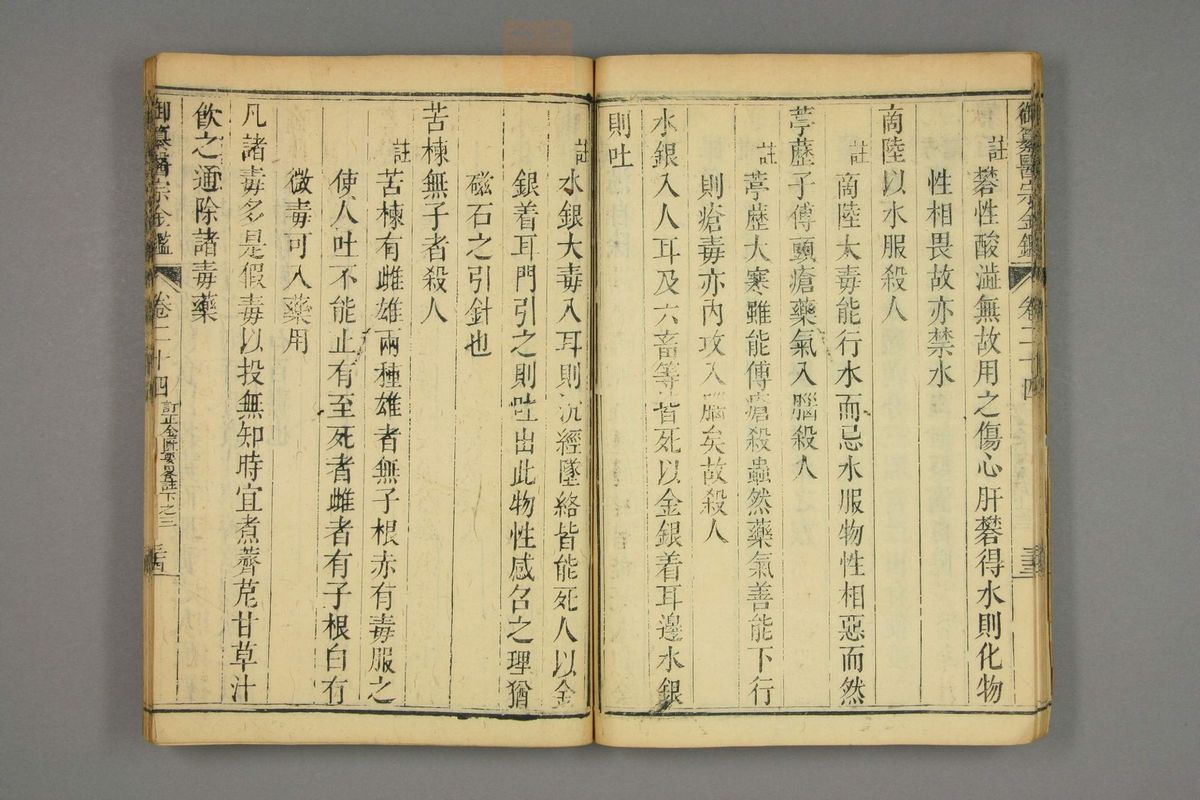 御纂醫宗金鑑 卷二十四 三十三
註 礬性酸澁無故用之傷心肝礬得水則化物
性相畏故亦禁水
商陸以水服殺人
註 商陸大毒能行水而忌水服物性相惡而然
葶藶子傅頭瘡藥氣入腦殺人
註 葶藶大寒雖能傅瘡殺蟲然藥氣善能下行
則瘡毒亦內攻入腦矣故殺人
水銀入人耳及六畜等皆死以金銀着耳邊水銀
則吐
註 水銀大毒入耳則沉經墜絡皆能死人以金
銀着耳門引之則吐出此物性感召之理猶
磁石之引針也
苦楝無子者殺人
註 苦楝有雌雄兩種雄者無子根赤有毒服之
使人吐不能止有至死者雌者有子根白有
微毒可入藥用
凡諸毒多是假毒以投無知時宜煮薺苨甘草汁
飲之通除諸毒藥
御纂醫宗金鑑 卷二十四 訂正金匱要畧註下之三 三十四